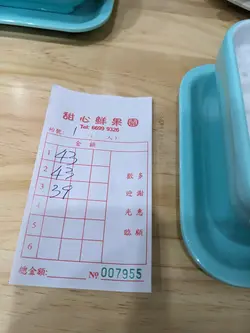 甜心鮮果園
Tel: 6699 9326
檯號: 1
金額
1 43
2 43
3 39
4
5
6
歡迎光臨
多謝惠顧
總金額: № 007955